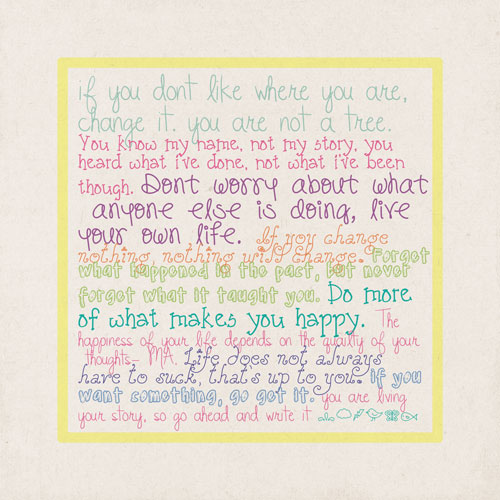 if you dont like where you are,
change it. you are not a tree.
You know my name, not my story, you
heard what i've done, not what i've been
though. Dont worry about what
anyone else is doing, live
your own life. If you change
nothing, nothing will change. Forget
what happened in the past, but never
forget what it taught you. Do more
of what makes you happy. The
happiness of your life depends on the quailty of your
thoughts- MA. Life does not always
have to suck, that's up to you. if you
want something, go get it. you are living
your story, so go ahead and write it